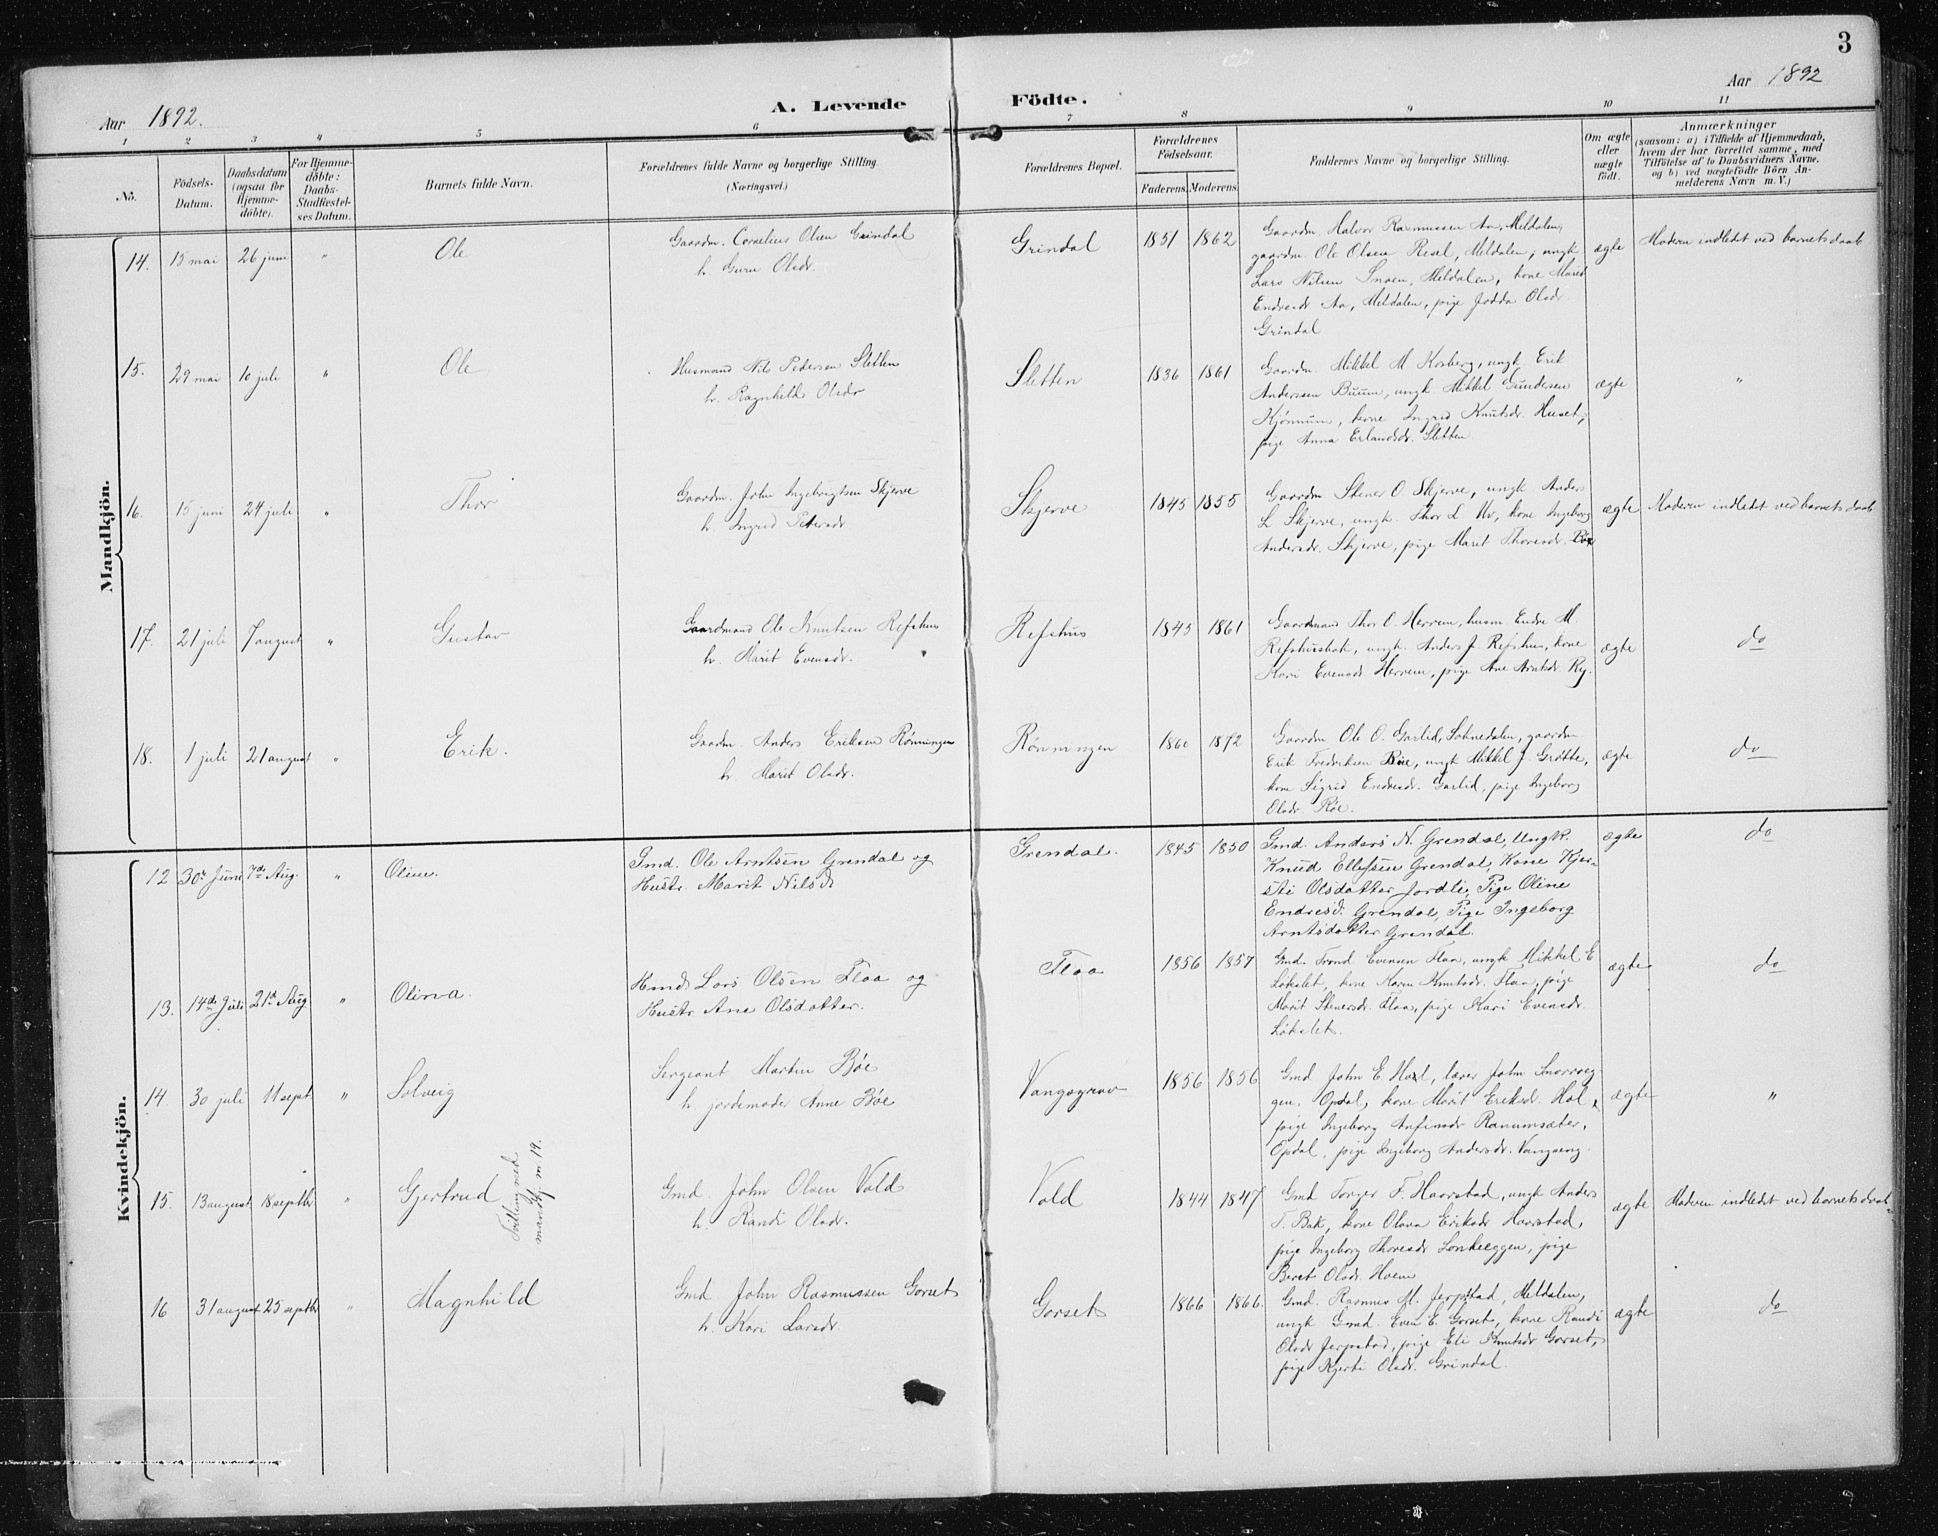 3
Aar 1892. A. Levende Födte. Aar 1892
1 2 3 4 5 6 7 8 9 10 11
No.
Födsels-Datum.
Daabsdatum (ogsaa for Hjemme-döbte).
For Hjemme-döbte: Daabs-Stadfæstel-ses Datum.
Barnets fulde Navn.
Forældrenes fulde Navne og borgerlige Stilling. (Næringsvei.)
Forældrenes Bopæl.
Forældrenes Födselsaar.
Faderens. Moderens.
Faddernes Navne og borgerlige Stilling.
Om ægte eller uægte födt.
Anmærkninger
(saasom: a) i Tilfælde af Hjemmedaab,
hvem der har forrettet samme, med
Tilföielse af to Daabsvidners Navne,
og b) ved uægtefödte Börn An-
melderens Navn m. V.)
Mandkjön.
14. 15 mai 26 juni " Ole
Gaardm. Cornelius Olsen Grindal
h. Guru Olsdr.
Grindal 1851 1862
Gaardm. Halvor Rasmussen Aa, Meldalen,
gaardm. Ole Olsen Resel, Meldalen, ungk.
Lars Nilsen Snoen, Meldalen, kone Marit
Endresdr Aa, Meldalen, pige Jodda Olsdr
Grindal
ægte Moderen indledet ved barnets daab
15. 29 mai 10 juli " Ole
Husmand Nils Pedersen Sletten
h. Ragnhild Olsdr
Sletten 1836 1861
Gaardm. Mikkel M Kosberg, ungk. Erik
Anderssen Buum, ungk. Mikkel Gundersen
Kjönnum, kone Ingrid Knutsdr. Huset,
pige Anna Erlandsdr. Sletten
ægte "
16. 15 juni 24 juli " Thor
Gaardm. John Ingebrigtsen Skjerve
h. Ingrid Petersdr
Skjerve 1845 1855
Gaardm Stener O. Skjerve, ungk Anders
L Skjerve, ungk. Thor L Uv, kone Ingeborg
Andersdr. Skjerve, pige Marit Thoresdr.
ægte Moderen indledet ved barnets daab
17. 21 juli 7 august " Gustav
Gaardmand Ole Knutsen Refshus
h. Marit Evensdr.
Refshus 1845 1861
Gaardmand Thor O. Herrem, husm Endre M
Refshusbak, ungk. Anders J. Refshus, kone
Kari Evensdr Herrem, pige Ane Arntsdr. Ry.
ægte do
18. 1 juli 21 august " Erik.
Gaardm. Anders Eriksen Rønningen
h. Marit Olsdr.
Rønningen 1860 1872
Gaardm Ole O. Garlid, Soknedalen, gaardm
Erik Frederiksen Bøe, ungk Mikkel J. Grøtte,
kone Sigrid Endresdr. Garlid, pige Ingeborg
Olsdr. Røe.
ægte do
Kvindekjön.
12 30te Juni 7de Aug. " Oline.
Gmd. Ole Arntsen Grendal og
Hustr. Marit Nilsd
Grendal. 1845 1850
Gmd. Anders N. Grendal, Ungk.
Knud Ellefsen Grendal, Kone Kjer-
sti Olsdatter Jordli, Pige Oline
Endresd. Grendal, Pige Ingeborg
Arntsdatter Grendal.
ægte do
13. 14de Juli 21d Aug " Olina.
Hmd. Lars Olsen Flaa og
Hustr Ane Olsdatter.
Flaa 1856 1857
Gmd. Trond Evensen Flaa, ungk Mikkel E
Løkslet, kone Karen Knutsdr. Flaa, pige
Marit Stenersdr. Flaa, pige Kari Evensdr.
Løkslet.
ægte do
14. 30 juli 11 sept " Solveig
Sergeant Martin Bőe
h. jordemoder Anne Bőe
Vangsgrav 1856 1856
Gmd John E. Hoel, lærer John Snorroeg-
gen, Opdal, kone Marit Eriksdr. Hol,
pige Ingeborg Anfinsdr Ranumsæter,
Opdal, pige Ingeborg Andersdr. Vangseng.
ægte "
15. 13 august 18 septbr " Gjertrud Tvilling med mandkj. n 19.
Gmd. John Olsen Vold
h. Randi Olsdr.
Vold 1844 1847
Gmd Torger F. Haarstad, ungk Anders
T. Bak, kone Olava Eriksdr Haarstad,
pige Ingeborg Thoresdr Lonkeeggen, pige
Beret Olsdr. Hoem
ægte Moderen indledet ved barnets daab.
16 31 august 25 septbr " Magnhild
Gmd. John Rasmussen Gorset
h. Kari Larsdr.
Gorset 1866 1866.
Gmd. Rasmus M. Jerpstad, Meldalen,
ungk Gmd. Even E. Gorset, kone Randi
Olsdr Jerpstad, pige Eli Knutsdr Gorset,
pige Kjersti Olsdr. Grindal.
ægte do